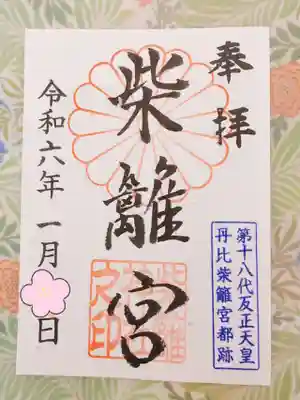 奉拝
柴籬宮
第十八代反正天皇
丹比柴籬宮都跡
令和六年一月日